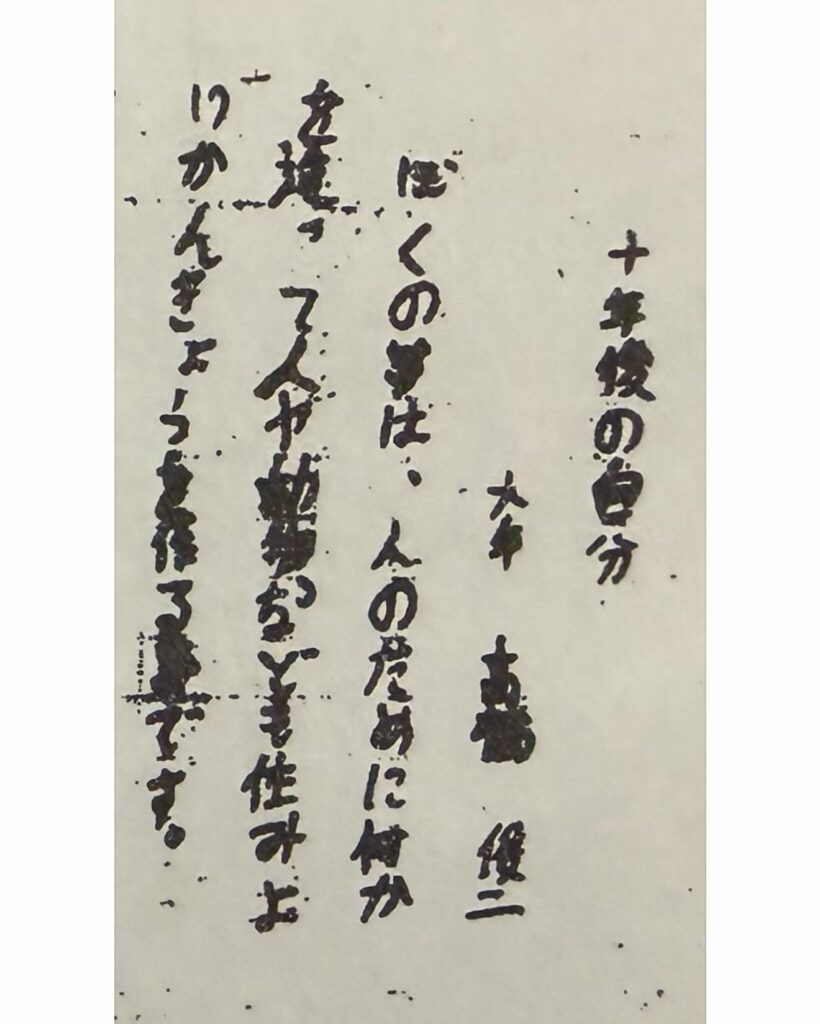 十年後の自分
六年 俊二
ぼくの夢は、人のために何か
を造って人や動物など住みよ
いかんきょうを作る事です。